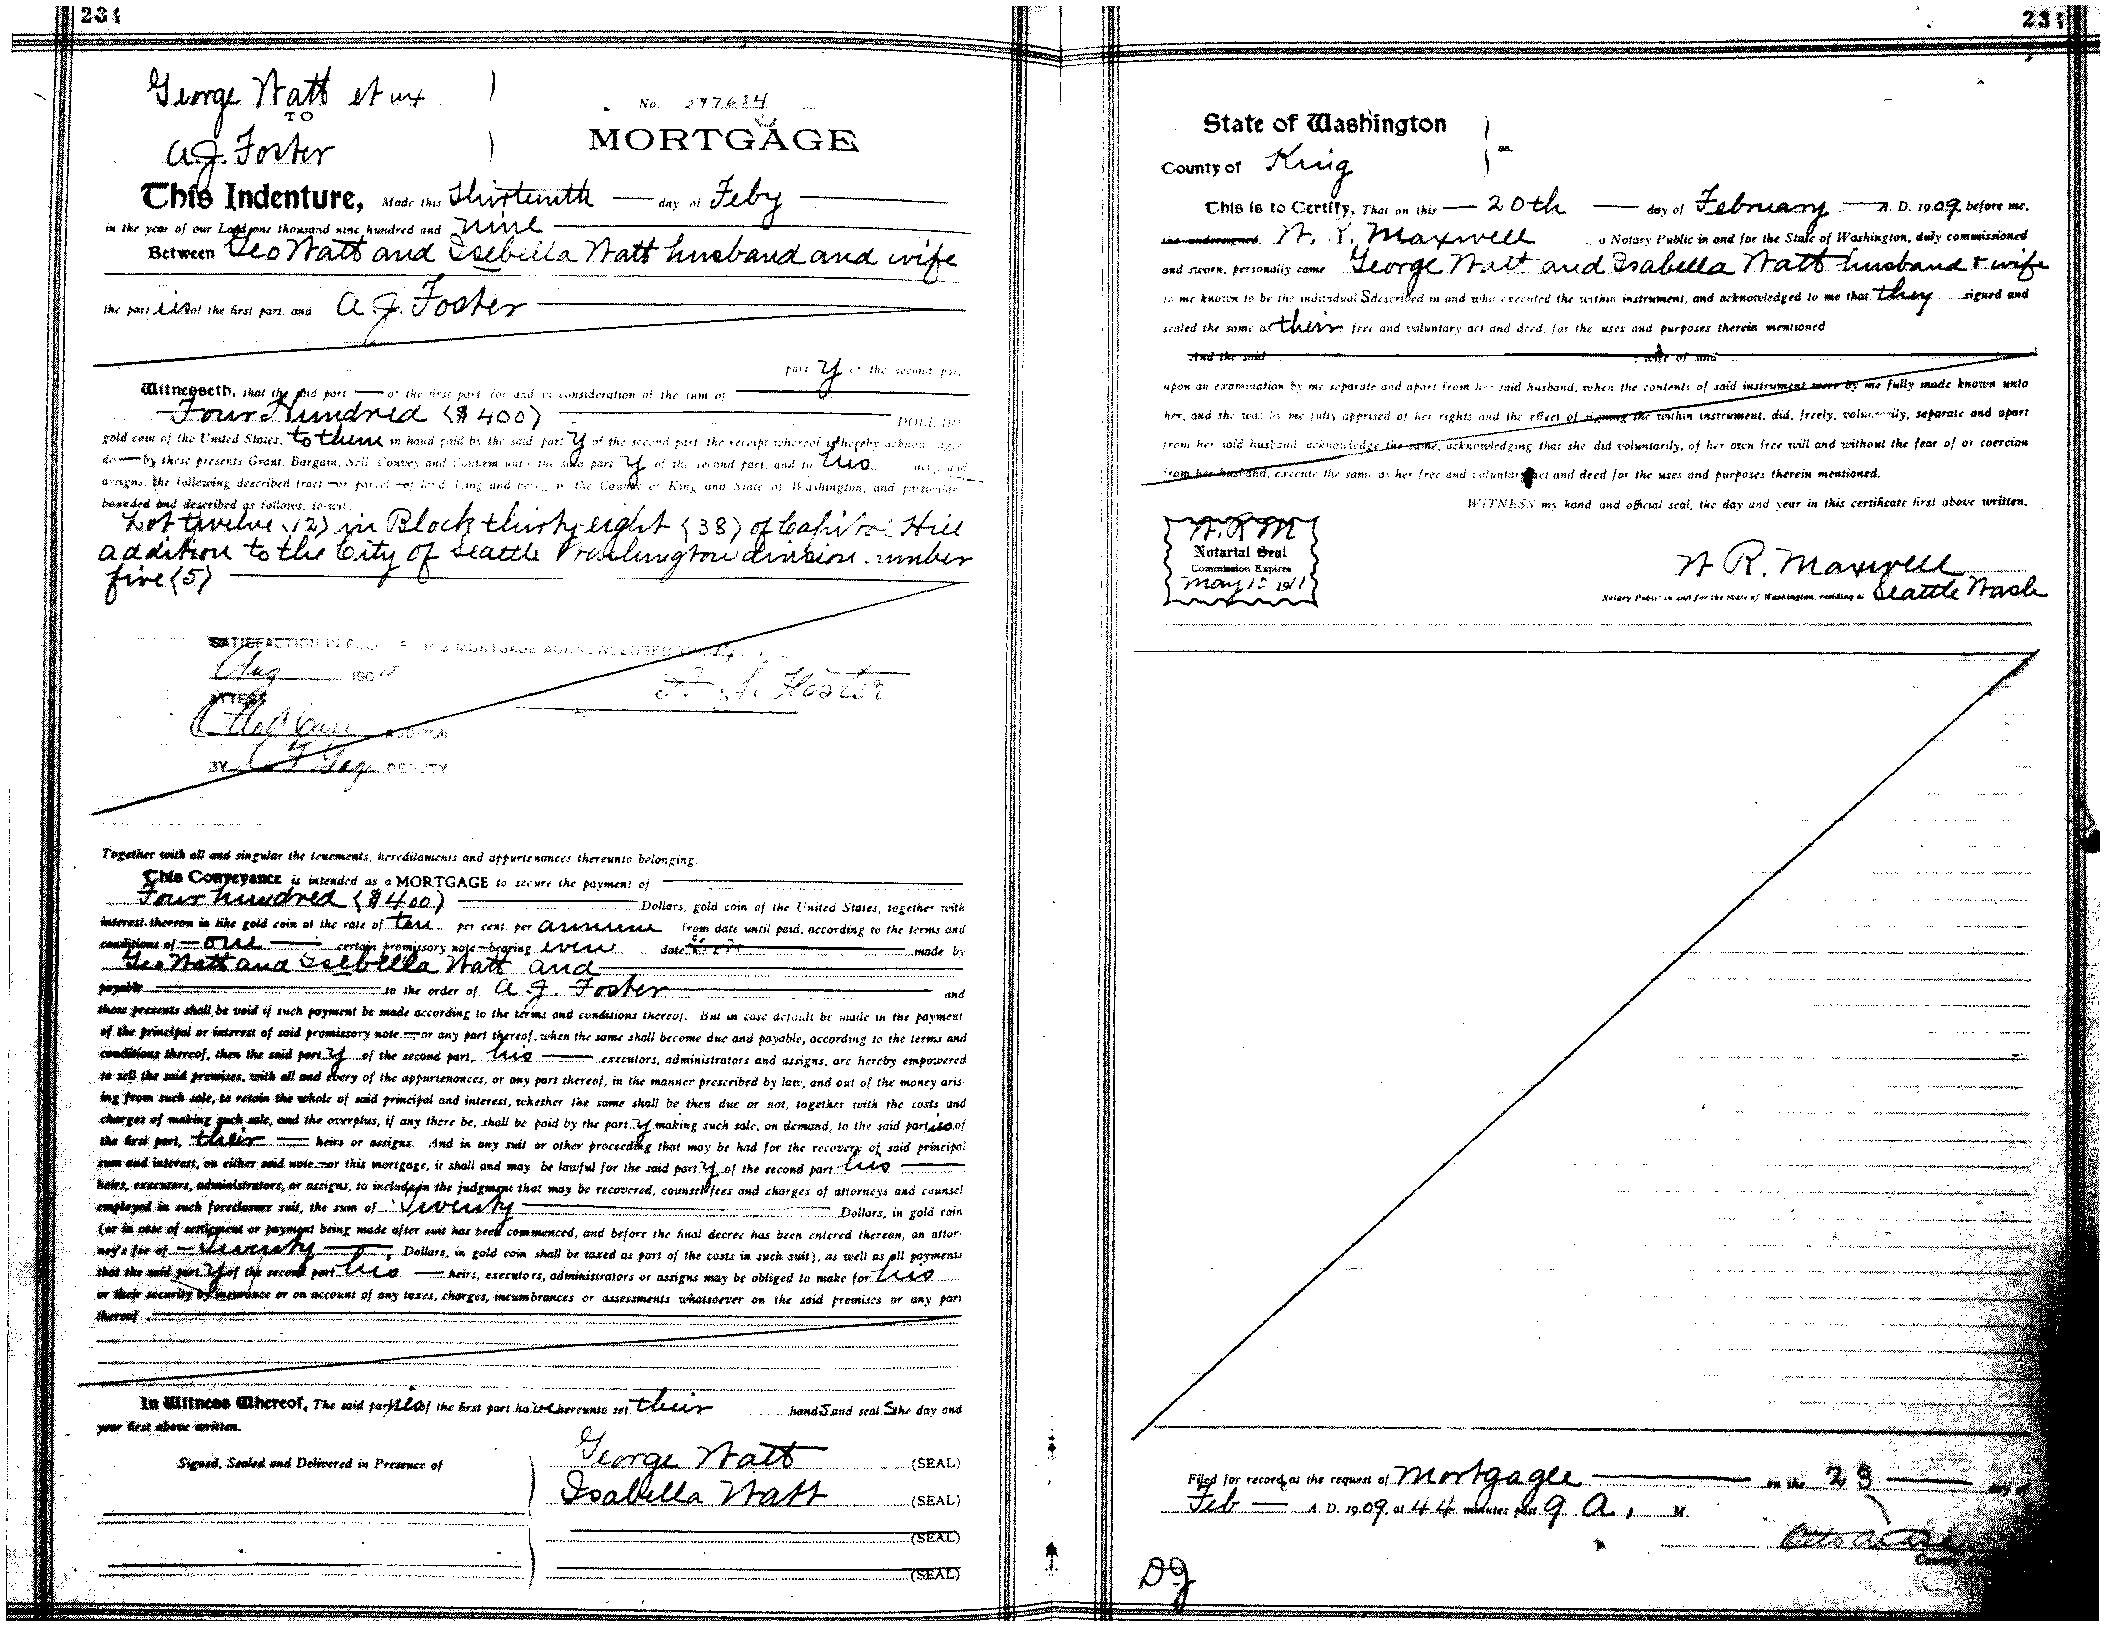 231
George Watt et ux
TO
A.J. Foster
No.
MORTGAGE
This Indenture, Made this Thirteenth day of Feby
in the year of our Lord one thousand nine hundred and nine
Between Geo Watt and Isebella Watt husband and wife
the parties of the first part, and A J. Foster
party of the second part
Witnesseth, that the said part of the first part for and in consideration of the sum of
Four Hundred ($400) DOLLARS
gold coin of the United States, to them in hand paid by the said party of the second part, the receipt whereof is hereby acknowledged
do by these presents Grant, Bargain, Sell, Convey and Confirm unto the said party of the second part, and to his and
assigns, the following described tract or parcel of land, lying and being in the County of King and State of Washington, and particularly
bounded and described as follows, to-wit:
Lot twelve (12) in Block thirty eight (38) of Capitol Hill
addition to the City of Seattle Washington division number
five (5)
SATISFACTION MORTGAGE
Aug 190
Foster
BY DEPUTY
Together with all and singular the tenements, hereditaments and appurtenances thereunto belonging.
This Conveyance is intended as a MORTGAGE to secure the payment of
Four hundred ($400) Dollars, gold coin of the United States, together with
interest thereon in like gold coin at the rate of ten per cent. per annum from date until paid, according to the terms and
conditions of one certain promissory note bearing even date made by
Geo Watt and Isebella Watt and
payable to the order of A J. Foster and
these presents shall be void if such payment be made according to the terms and conditions thereof. But in case default be made in the payment
of the principal or interest of said promissory note or any part thereof, when the same shall become due and payable, according to the terms and
conditions thereof, then the said party of the second part, his executors, administrators and assigns, are hereby empowered
to sell the said premises, with all and every of the appurtenances, or any part thereof, in the manner prescribed by law, and out of the money aris-
ing from such sale, to retain the whole of said principal and interest, whether the same shall be then due or not, together with the costs and
charges of making such sale, and the overplus, if any there be, shall be paid by the party making such sale, on demand, to the said parties of
the first part, their heirs or assigns. And in any suit or other proceeding that may be had for the recovery of said principal
sum and interest, on either said note or this mortgage, it shall and may be lawful for the said party of the second part his
heirs, executors, administrators, or assigns, to include in the judgment that may be recovered, counsel fees and charges of attorneys and counsel
employed in such foreclosure suit, the sum of Seventy Dollars, in gold coin
(or in case of settlement or payment being made after suit has been commenced, and before the final decree has been entered thereon, an attor-
ney's fee of Seventy Dollars, in gold coin shall be taxed as part of the costs in such suit), as well as all payments
that the said party of the second part his heirs, executors, administrators or assigns may be obliged to make for his
or their security by insurance or on account of any taxes, charges, incumbrances or assessments whatsoever on the said premises or any part
thereof
In Witness Whereof, The said parties of the first part have hereunto set their hands and seals the day and
year first above written.
Signed, Sealed and Delivered in Presence of
George Watt (SEAL)
Isabella Watt (SEAL)
(SEAL)
(SEAL)
231
State of Washington
County of King
This is to Certify, That on this 20th day of February A. D. 1909 before me,
the undersigned W. R. Maxwell a Notary Public in and for the State of Washington, duly commissioned
and sworn, personally came George Watt and Isabella Watt husband & wife
to me known to be the individual S described in and who executed the within instrument, and acknowledged to me that they signed and
sealed the same as their free and voluntary act and deed, for the uses and purposes therein mentioned
And the said wife of said
upon an examination by me separate and apart from her said husband, when the contents of said instrument were by me fully made known unto
her, and she was by me fully apprised of her rights and the effect of signing the within instrument, did, freely, voluntarily, separate and apart
from her said husband, acknowledge the same, acknowledging that she did voluntarily, of her own free will and without the fear of or coercion
from her husband, execute the same as her free and voluntary act and deed for the uses and purposes therein mentioned.
WITNESS my hand and official seal, the day and year in this certificate first above written.
W.R M
Notarial Seal
Commission Expires
May 1911
W R. Maxwell
Notary Public in and for the State of Washington, residing at Seattle Wash
Filed for record at the request of Mortgagee on the 23 day of
Feb A. D. 1909, at 44 minutes past 9 A. M
DJ